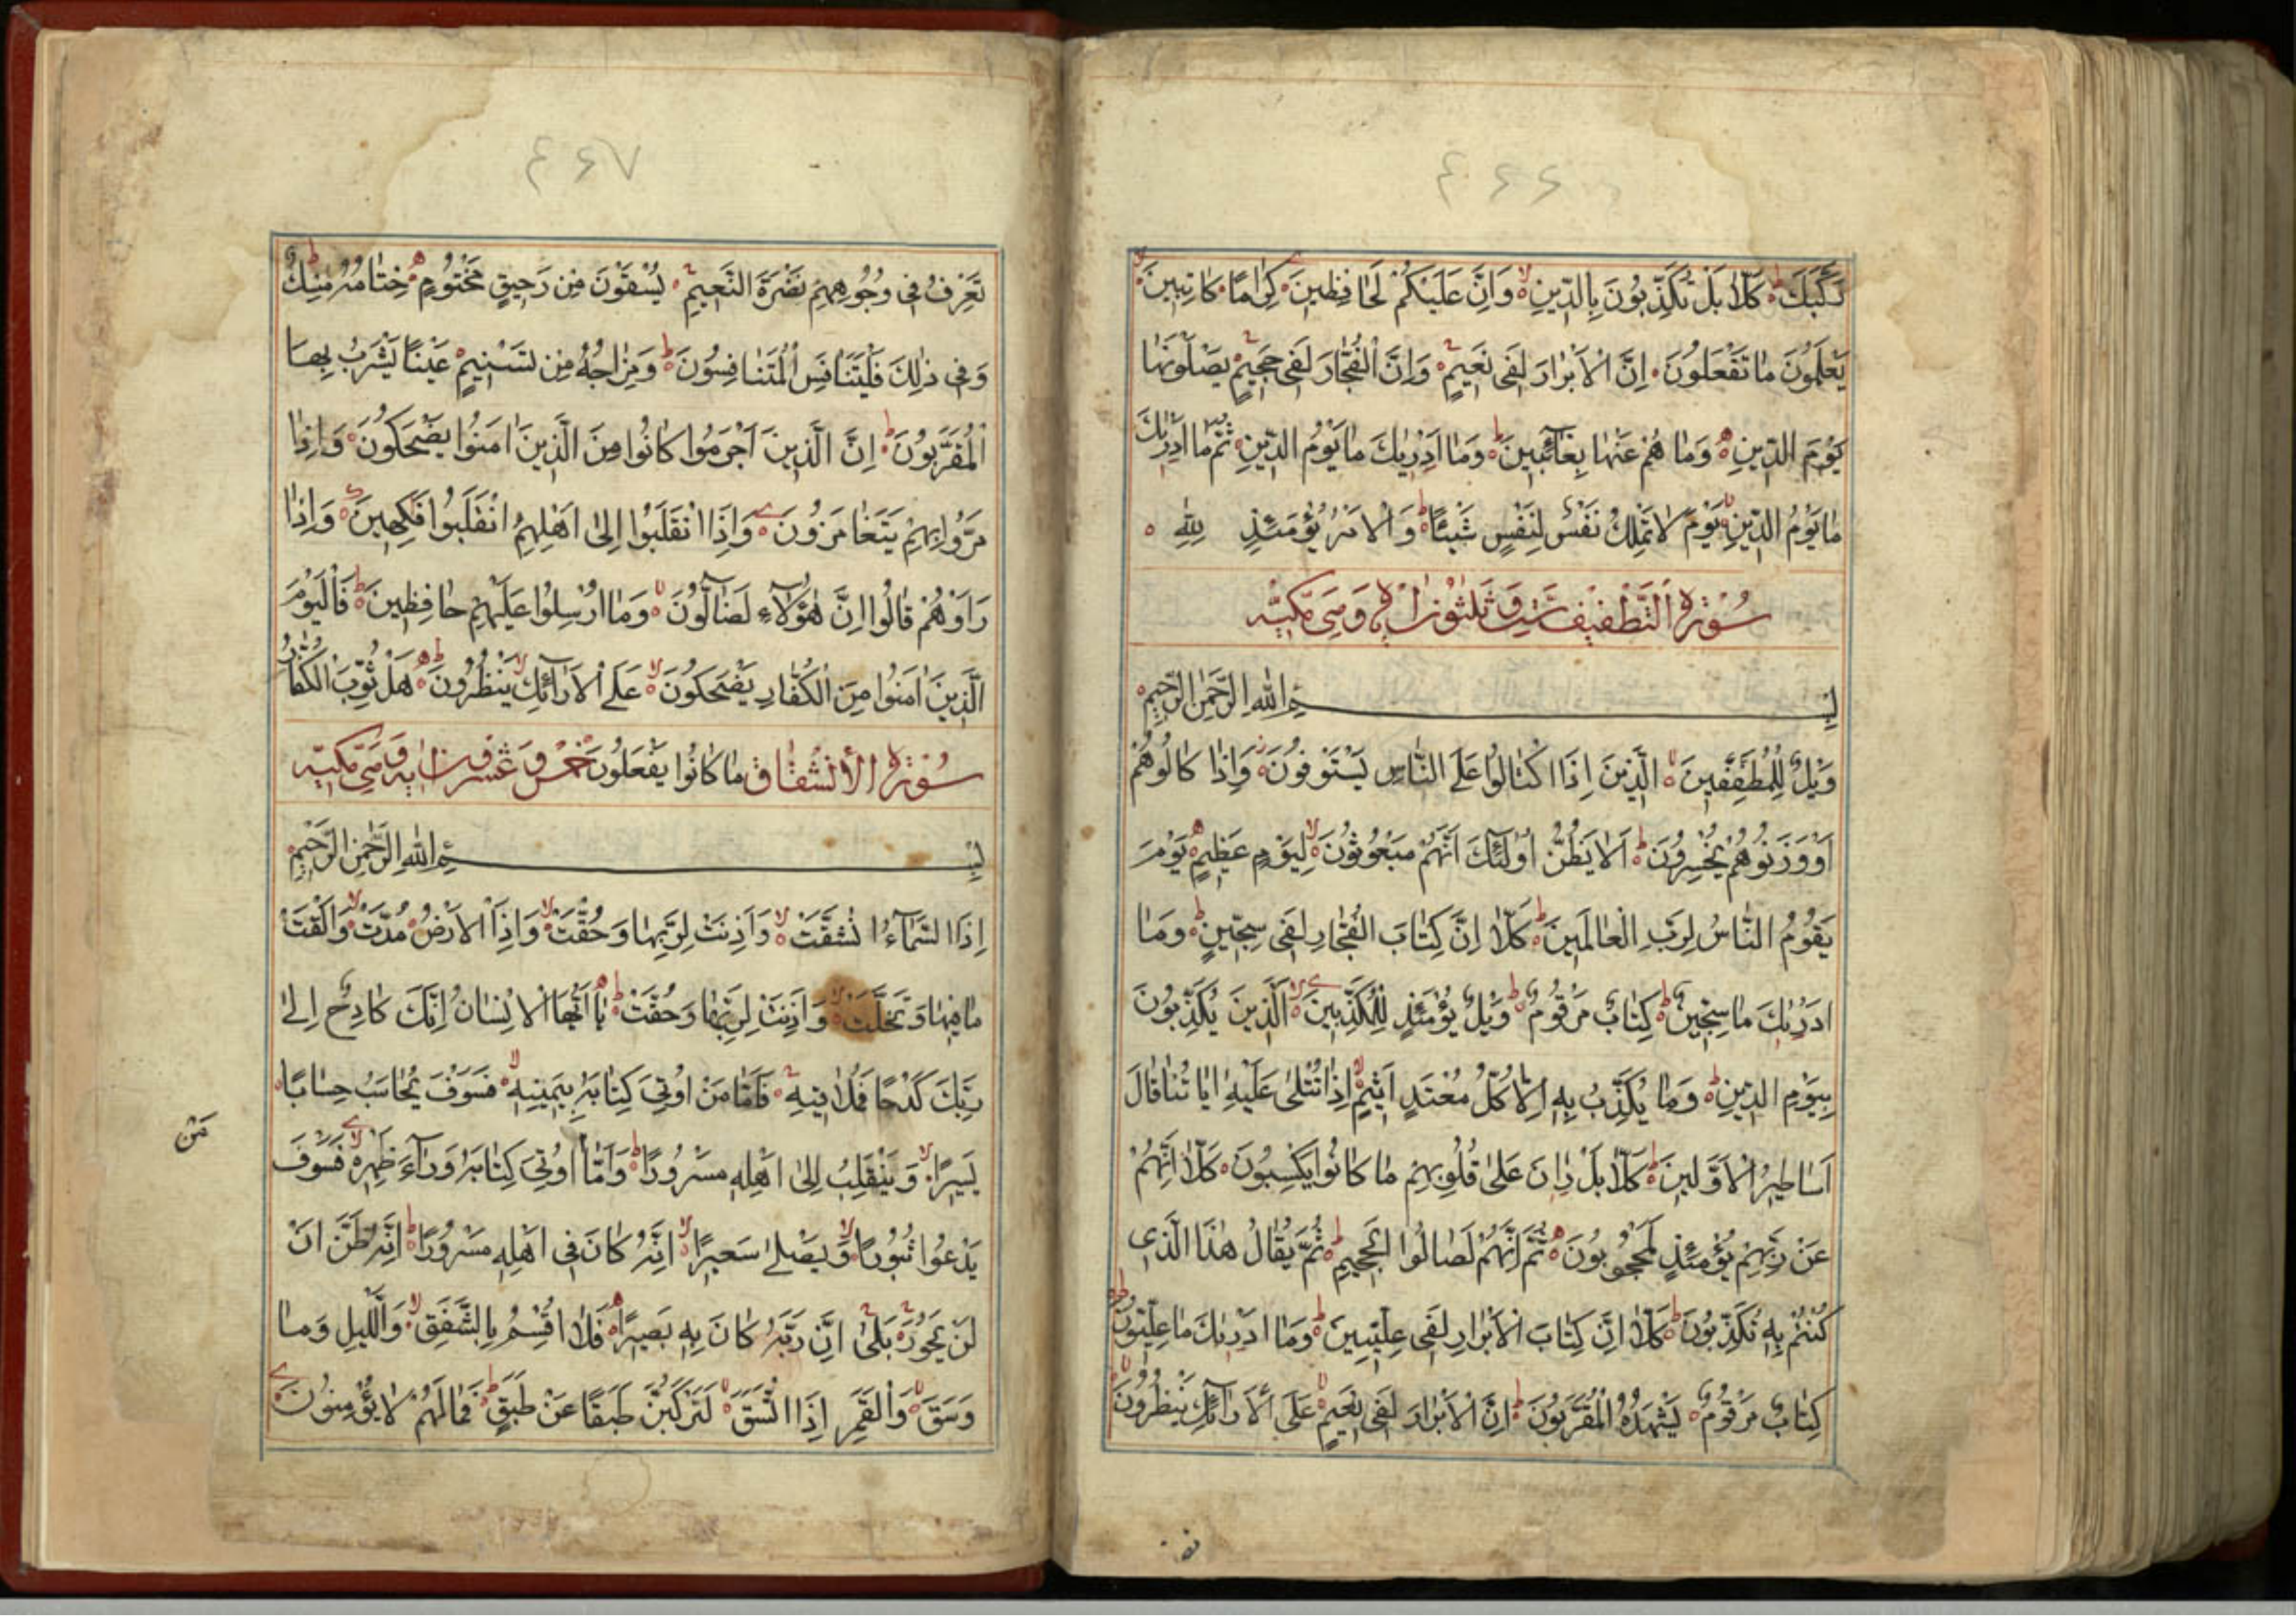 ۴۶۶
رَكَّبَكَ كَلَّا بَلْ تُكَذِّبُونَ بِالدِّينِ وَاِنَّ عَلَيْكُمْ لَحَافِظِينَ كِرَامًا كَاتِبِينَ
يَعْلَمُونَ مَا تَفْعَلُونَ اِنَّ الْاَبْرَارَ لَفِى نَعِيمٍ وَاِنَّ الْفُجَّارَ لَفِى جَحِيمٍ يَصْلَوْنَهَا
يَوْمَ الدِّينِ وَمَا هُمْ عَنْهَا بِغَائِبِينَ وَمَا اَدْرٰيكَ مَا يَوْمُ الدِّينِ ثُمَّ مَا اَدْرٰيكَ
مَا يَوْمُ الدِّينِ يَوْمَ لَا تَمْلِكُ نَفْسٌ لِنَفْسٍ شَيْئًا وَالْاَمْرُ يَوْمَئِذٍ لِلّٰهِ
سُورَةُ التَّطْفِيفِ سِتّ وَثَلٰثُونَ اٰيَة وَهِىَ مَكِّيَّة
بِسْمِ اللّٰهِ الرَّحْمٰنِ الرَّحِيمِ
وَيْلٌ لِلْمُطَفِّفِينَ الَّذِينَ اِذَا اكْتَالُوا عَلَى النَّاسِ يَسْتَوْفُونَ وَاِذَا كَالُوهُمْ
اَوْ وَزَنُوهُمْ يُخْسِرُونَ اَلَا يَظُنُّ اُولٰئِكَ اَنَّهُمْ مَبْعُوثُونَ لِيَوْمٍ عَظِيمٍ يَوْمَ
يَقُومُ النَّاسُ لِرَبِّ الْعَالَمِينَ كَلَّا اِنَّ كِتَابَ الْفُجَّارِ لَفِى سِجِّينٍ وَمَا
اَدْرٰيكَ مَا سِجِّينٌ كِتَابٌ مَرْقُومٌ وَيْلٌ يَوْمَئِذٍ لِلْمُكَذِّبِينَ الَّذِينَ يُكَذِّبُونَ
بِيَوْمِ الدِّينِ وَمَا يُكَذِّبُ بِهِ اِلَّا كُلُّ مُعْتَدٍ اَثِيمٍ اِذَا تُتْلٰى عَلَيْهِ اٰيَاتُنَا قَالَ
اَسَاطِيرُ الْاَوَّلِينَ كَلَّا بَلْ رَانَ عَلٰى قُلُوبِهِمْ مَا كَانُوا يَكْسِبُونَ كَلَّا اِنَّهُمْ
عَنْ رَبِّهِمْ يَوْمَئِذٍ لَمَحْجُوبُونَ ثُمَّ اِنَّهُمْ لَصَالُوا الْجَحِيمِ ثُمَّ يُقَالُ هٰذَا الَّذِى
كُنْتُمْ بِهِ تُكَذِّبُونَ كَلَّا اِنَّ كِتَابَ الْاَبْرَارِ لَفِى عِلِّيِّينَ وَمَا اَدْرٰيكَ مَا عِلِّيُّونَ
كِتَابٌ مَرْقُومٌ يَشْهَدُهُ الْمُقَرَّبُونَ اِنَّ الْاَبْرَارَ لَفِى نَعِيمٍ عَلَى الْاَرَائِكِ يَنْظُرُونَ
۴۶۷
تَعْرِفُ فِى وُجُوهِهِمْ نَضْرَةَ النَّعِيمِ يُسْقَوْنَ مِنْ رَحِيقٍ مَخْتُومٍ خِتَامُهُ مِسْكٌ
وَفِى ذٰلِكَ فَلْيَتَنَافَسِ الْمُتَنَافِسُونَ وَمِزَاجُهُ مِنْ تَسْنِيمٍ عَيْنًا يَشْرَبُ بِهَا
الْمُقَرَّبُونَ اِنَّ الَّذِينَ اَجْرَمُوا كَانُوا مِنَ الَّذِينَ اٰمَنُوا يَضْحَكُونَ وَاِذَا
مَرُّوا بِهِمْ يَتَغَامَزُونَ وَاِذَا انْقَلَبُوا اِلٰى اَهْلِهِمُ انْقَلَبُوا فَكِهِينَ وَاِذَا
رَاَوْهُمْ قَالُوا اِنَّ هٰؤُلَاءِ لَضَالُّونَ وَمَا اُرْسِلُوا عَلَيْهِمْ حَافِظِينَ فَالْيَوْمَ
الَّذِينَ اٰمَنُوا مِنَ الْكُفَّارِ يَضْحَكُونَ عَلَى الْاَرَائِكِ يَنْظُرُونَ هَلْ ثُوِّبَ الْكُفَّارُ
سُورَةُ الْاِنْشِقَاقِ مَا كَانُوا يَفْعَلُونَ خَمْس وَعِشْرُونَ اٰيَة وَهِىَ مَكِّيَّة
بِسْمِ اللّٰهِ الرَّحْمٰنِ الرَّحِيمِ
اِذَا السَّمَاءُ انْشَقَّتْ وَاَذِنَتْ لِرَبِّهَا وَحُقَّتْ وَاِذَا الْاَرْضُ مُدَّتْ وَاَلْقَتْ
مَا فِيهَا وَتَخَلَّتْ وَاَذِنَتْ لِرَبِّهَا وَحُقَّتْ يَا اَيُّهَا الْاِنْسَانُ اِنَّكَ كَادِحٌ اِلٰى
رَبِّكَ كَدْحًا فَمُلَاقِيهِ فَاَمَّا مَنْ اُوتِىَ كِتَابَهُ بِيَمِينِهِ فَسَوْفَ يُحَاسَبُ حِسَابًا
يَسِيرًا وَيَنْقَلِبُ اِلٰى اَهْلِهِ مَسْرُورًا وَاَمَّا اُوتِىَ كِتَابَهُ وَرَاءَ ظَهْرِهِ فَسَوْفَ
مَنْ
يَدْعُوا ثُبُورًا وَيَصْلٰى سَعِيرًا اِنَّهُ كَانَ فِى اَهْلِهِ مَسْرُورًا اِنَّهُ ظَنَّ اَنْ
لَنْ يَحُورَ بَلٰى اِنَّ رَبَّهُ كَانَ بِهِ بَصِيرًا فَلَا اُقْسِمُ بِالشَّفَقِ وَالَّيْلِ وَمَا
وَسَقَ وَالْقَمَرِ اِذَا اتَّسَقَ لَتَرْكَبُنَّ طَبَقًا عَنْ طَبَقٍ فَمَا لَهُمْ لَا يُؤْمِنُونَ